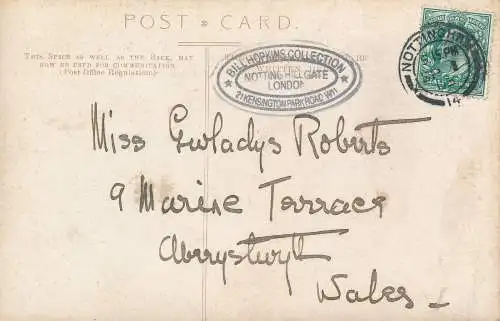 POST CARD.
THIS SPACE AS WELL AS THE BACK, MAY
NOW BE USED FOR COMMUNICATION.
(Post Office Regulation.)
BILL HOPKINS COLLECTION
NOTTING HILL GATE
LONDON
21 KENSINGTON PARK ROAD W11
NOTTINGHAM
PM
14
Miss Gwladys Roberts
9 Marine Terrace
Aberystwyth
Wales